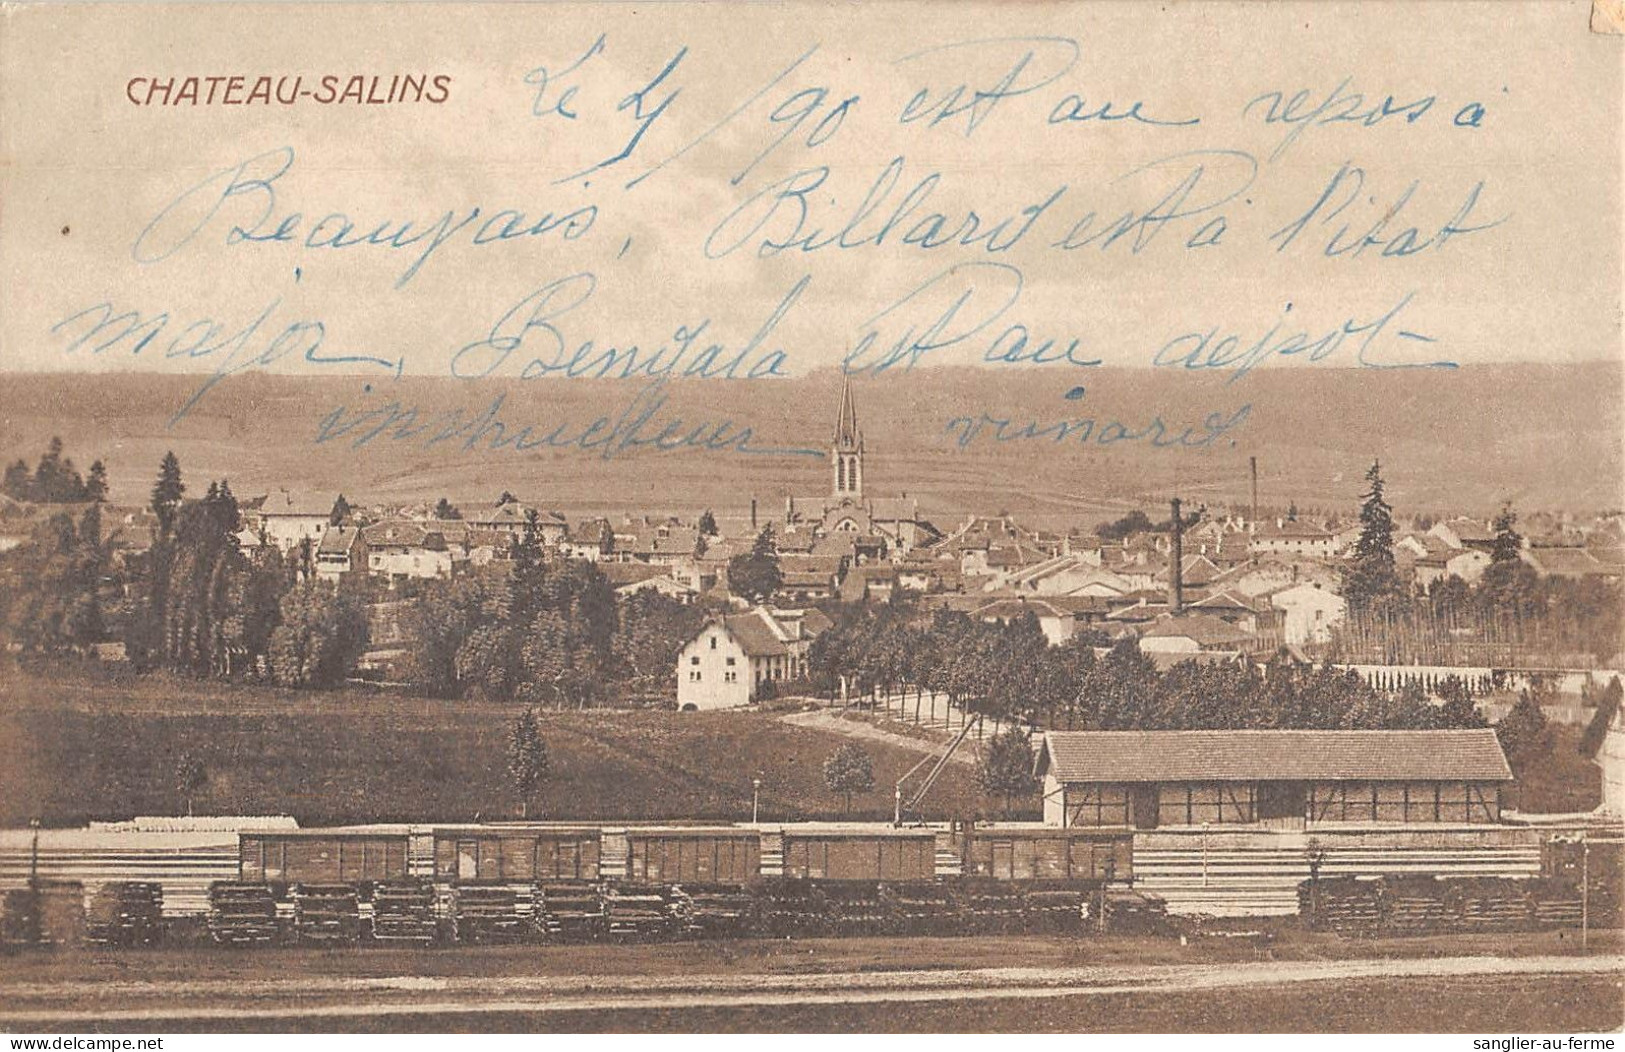 CHATEAU-SALINS
Le 4/90 est au repos à
Beauvais, Billard est à l'état
major, Bengala est au dépot
instructeur vuinard.
sanglier-au-ferme